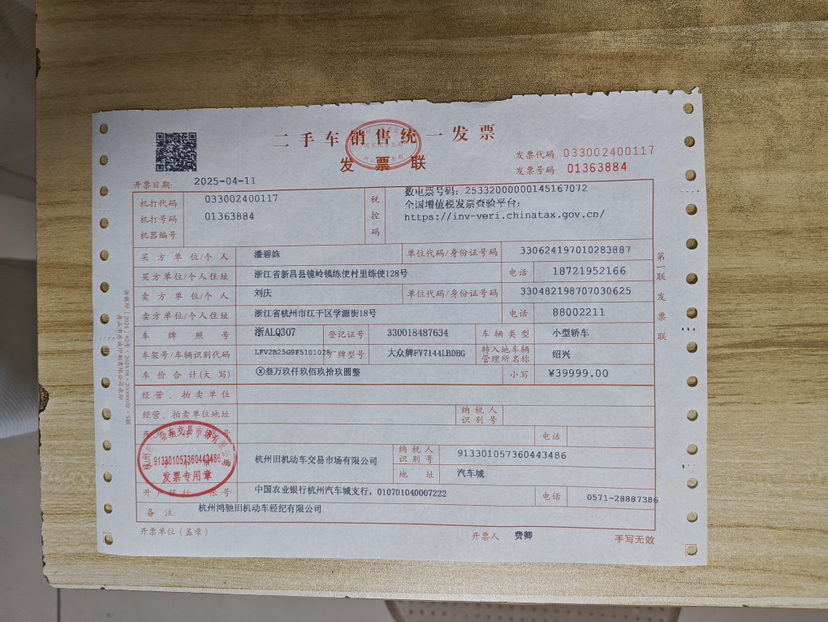 二手车销售统一发票
发票联
发票代码 033002400117
发票号码 01363884
开票日期: 2025-04-11
机打代码 033002400117
机打号码 01363884
机器编号
税控码
数电票号码: 25332000000145167072
全国增值税发票查验平台:
https://inv-veri.chinatax.gov.cn/
买方单位/个人 潘碧姝 单位代码/身份证号码 330624197010283887
买方单位/个人住址 浙江省新昌县镜岭镇练使村里练使128号 电话 18721952166
卖方单位/个人 刘庆 单位代码/身份证号码 330482198707030625
卖方单位/个人住址 浙江省杭州市江干区学源街18号 电话 88002211
车牌照号 浙ALQ307 登记证号 330018487634 车辆类型 小型轿车
车架号/车辆识别代码 LFV2B25G9F5101025 厂牌型号 大众牌FV7144LBDBG 转入地车辆管理所名称 绍兴
车价合计(大写) ⓧ叁万玖仟玖佰玖拾玖圆整 小写 ¥39999.00
经营、拍卖单位
经营、拍卖单位地址 纳税人识别号
电话
杭州旧机动车交易市场有限公司 纳税人识别号 913301057360443486
地址 汽车城
开户银行 账号 中国农业银行杭州汽车城支行, 010701040007222 电话 0571-28887386
备注: 杭州鸿驰旧机动车经纪有限公司
开票单位(盖章) 开票人 费卿 手写无效
第一联 发票联
913301057360443486
发票专用章